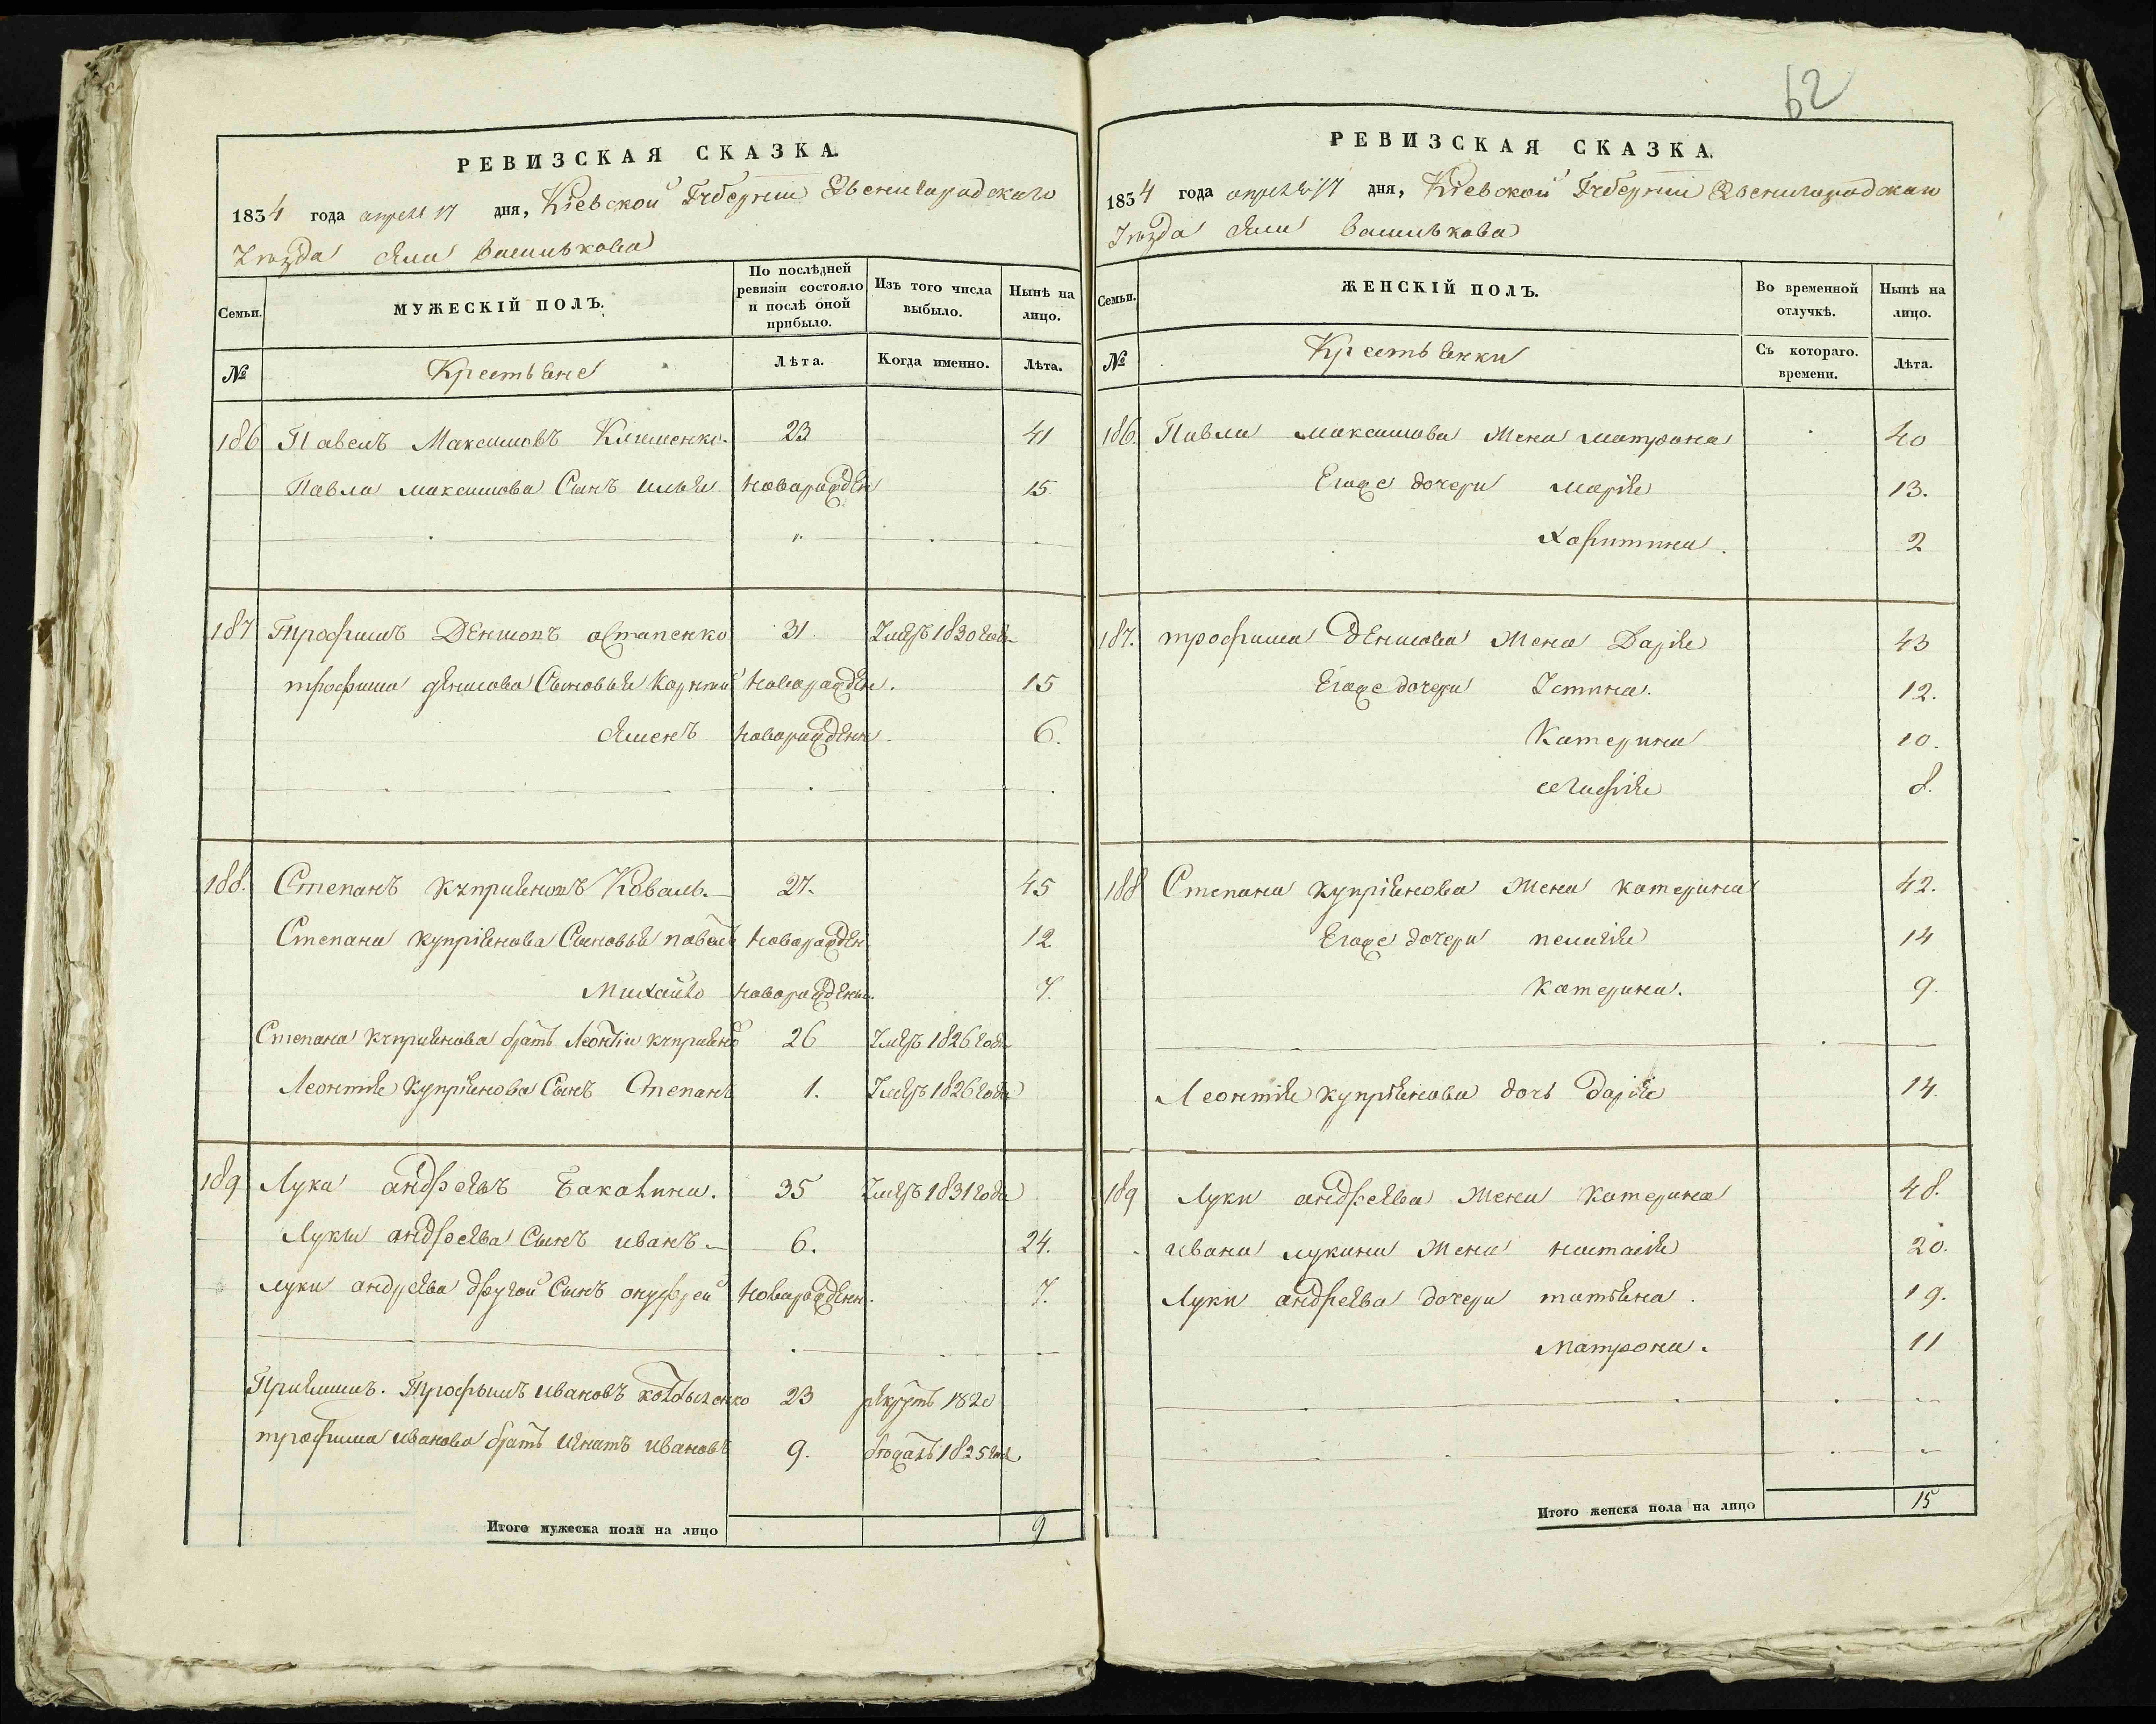 62
РЕВИЗСКАЯ СКАЗКА.
1834 года апреля 17 дня, Кіевской Губерніи Звенигородскаго
Уѣзда села Василькова
Семьи.
МУЖЕСКІЙ ПОЛЪ.
По послѣдней ревизіи состояло и послѣ оной прибыло.
Изъ того числа выбыло.
Нынѣ на лицо.
№ Крестьяне Лѣта. Когда именно. Лѣта.
186 Павелъ Максимовъ Клименко. 23 41
Павла максимова Сынъ илья новорожден 15.
187 Трофимъ Денисовъ остапенко 31. Умеръ 1830 года
трофима денисова Сыновья Корнѣй новорожден. 15
Яменъ новорожденн. 6.
188. Степанъ Куприяновъ Коваль. 27. 45
Степана купріянова Сыновья павелъ новорожден 12
Михайло новорожденн. 7.
Степана Куприянова братъ Леонтій куприяно 26 Умеръ 1826 года
Леонтия купріянова Сынъ Степанъ 1. Умеръ 1826 года
189 Лука андреевъ Бакалина. 35 Умеръ 1831 года
Луки андреева Сынъ иванъ 6. 24.
луки андреева другой Сынъ онуфрей новорожденн. 7.
Приимышъ. Трофимъ ивановъ 23 рекрутъ 182
трофима иванова братъ игнатъ ивановъ 9. бежалъ 1825 год.
Итого мужеска пола на лицо 9
РЕВИЗСКАЯ СКАЗКА.
1834 года апреля 17 дня, Кіевской Губерніи Звенигородскаго
Уѣзда села Василькова
Семьи.
ЖЕНСКІЙ ПОЛЪ.
Во временной отлучкѣ.
Нынѣ на лицо.
№ Крестьянки Съ котораго. времени. Лѣта.
186. Павла максимова жена матрона 40
Егоже дочери марія 13.
Харитина. 2
187. трофима Денисова жена Дарія 43
Егоже дочери Устина. 12.
Катерина 10.
агафія 8.
188 Степана купріянова жена катерина 42.
Егоже дочери пелагія 14
Катерина. 9.
Леонтія купріянова дочь дарія 14.
189 Луки андреева жена Катерина 48.
ивана лукина жена настасія 20.
Луки андреева дочери татьяна. 19.
матрона. 11
Итого женска пола на лицо 15